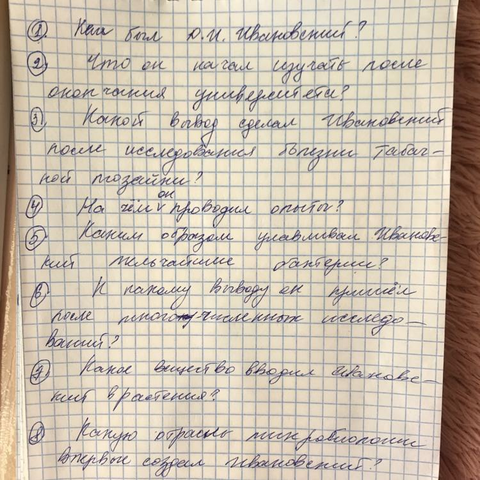 1 Кем был Ю.И. Ивановский?
2. Что он начал изучать после
окончания университета?
3. Какой вывод сделал Ивановский
после исследования болезни табач-
ной мозайки?
4 На чём он проводил опыты?
5 Каким образом улавливал Ивановс-
кий мельчайшие бактерии?
6 К какому выводу он пришёл
после многочисленных исследо-
ваний?
7 Какое вещество вводил Ивановс-
кий в растения?
8 Какую отрасль микробиологии
впервые создал Ивановский?